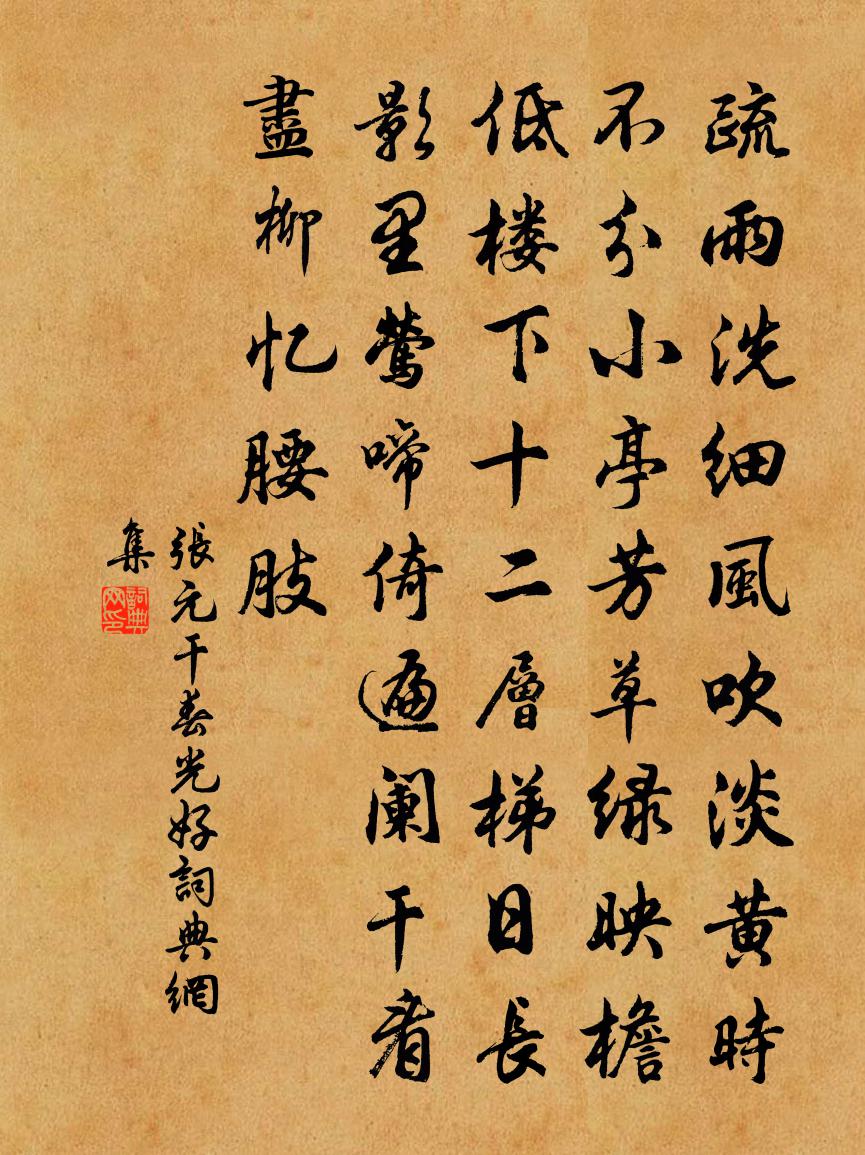 疏雨洗細風吹淡黃時
不分小亭芳草绿映檐
低楼下十二層梯日長
影里鶯啼倚遍阑干看
盡柳忆腰肢
張元干春光好詞典網
集
詞典
网印